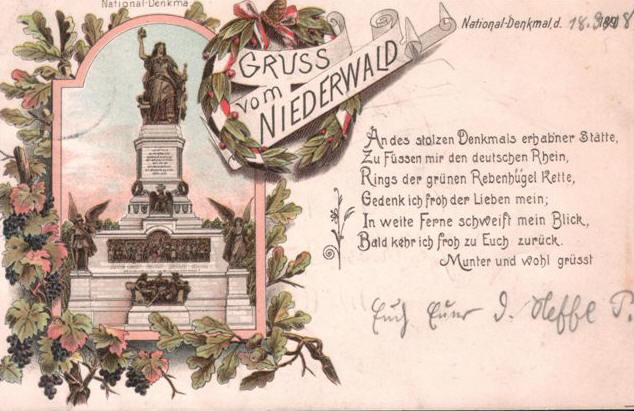 National-Denkmal
GRUSS
vom
NIEDERWALD
National-Denkmal, d.
An des stolzen Denkmals erhab'ner Stätte,
Zu Füssen mir den deutschen Rhein,
Rings der grünen Rebenhügel Kette,
Gedenk ich froh der Lieben mein;
In weite Ferne schweift mein Blick,
Bald kehr ich froh zu Euch zurück.
Munter und wohl grüsst
Euch Euer